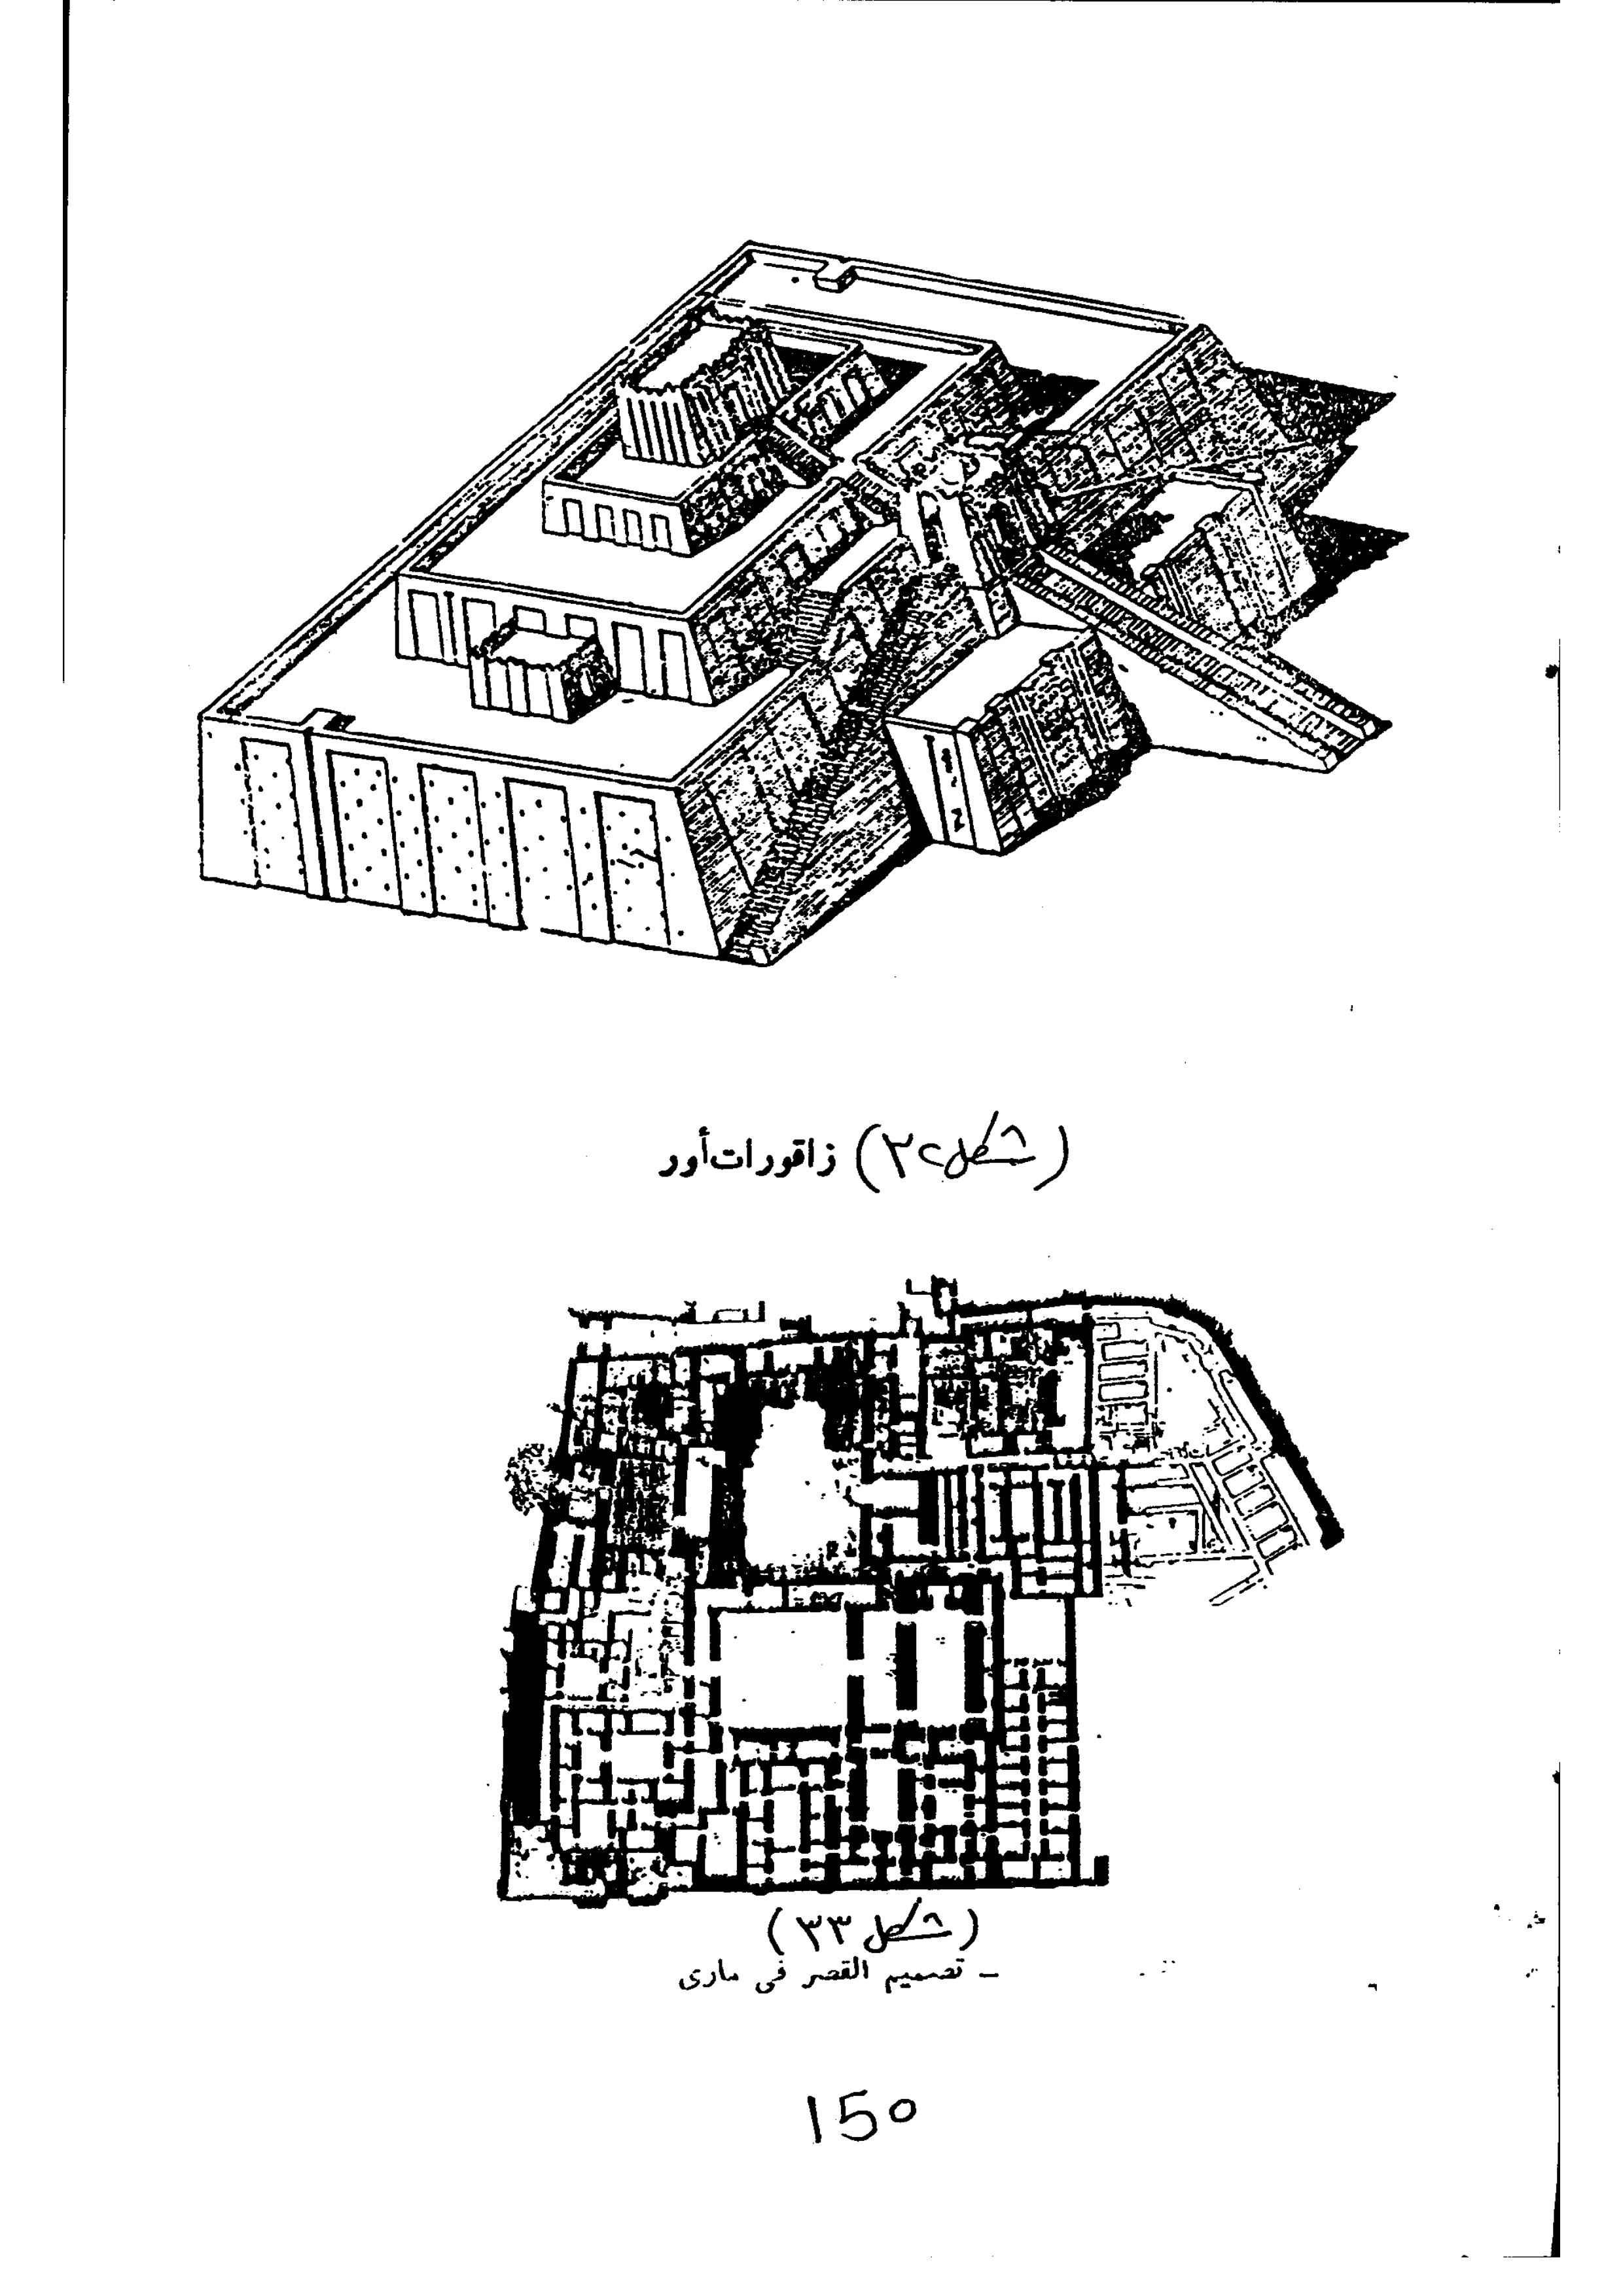 (شكل ٣٢) زاقورات أور
(شكل ٣٣)
– تصميم القصر فى مارى
150